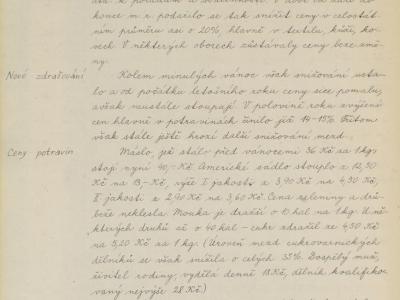 konce m.r. podařilo se tak snížit ceny v celostát-
ním průměru asi o 20%, hlavně v textilu, kůži, ko-
vech. V některých oborech zůstávaly ceny beze změ-
ny.
Nové zdražování
Kolem minulých vánoc však snižování usta-
lo a od počátku letošního roku ceny sice pomalu,
avšak neustále stoupají. V polovině roku zvýšení
cen hlavně v potravinách činilo již 14-15%. Přitom
však stále ještě hrozí další snižování mezd.
Ceny potravin
Máslo, jež stálo před vánocemi 36 Kč za 1 kg,
stojí nyní 40,- Kč. Americké sádlo stouplo z 12,50
Kč na 13,- Kč, vejce I. jakosti z 3,90 Kč na 4,30 Kč,
II. jakosti z 2,90 Kč na 3,60 Kč. Cena zeleniny a drů-
beže neklesla. Mouka je dražší o 10 hal na 1 kg. U ně-
kterých druhů až o 40 hal - cukr zdražil ze 4,50 Kč
na 5,20 Kč za 1 kg. (Úroveň mezd cukrovarnických
dělníků se však snížila o celých 33%. Dospělý muž,
živitel rodiny, vydělá denně 18 Kč, dělník kvalifiko-
vaný nejvýše 28 Kč.)